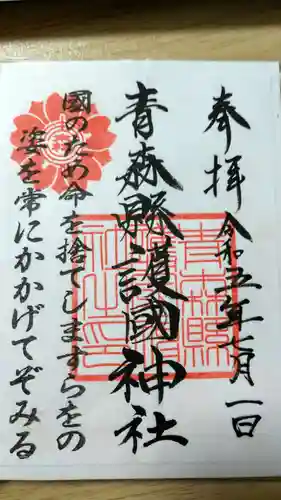 奉拝 令和五年七月一日
青森縣護國神社
國のため命を捨てしますらをの
姿を常にかかげてぞみる